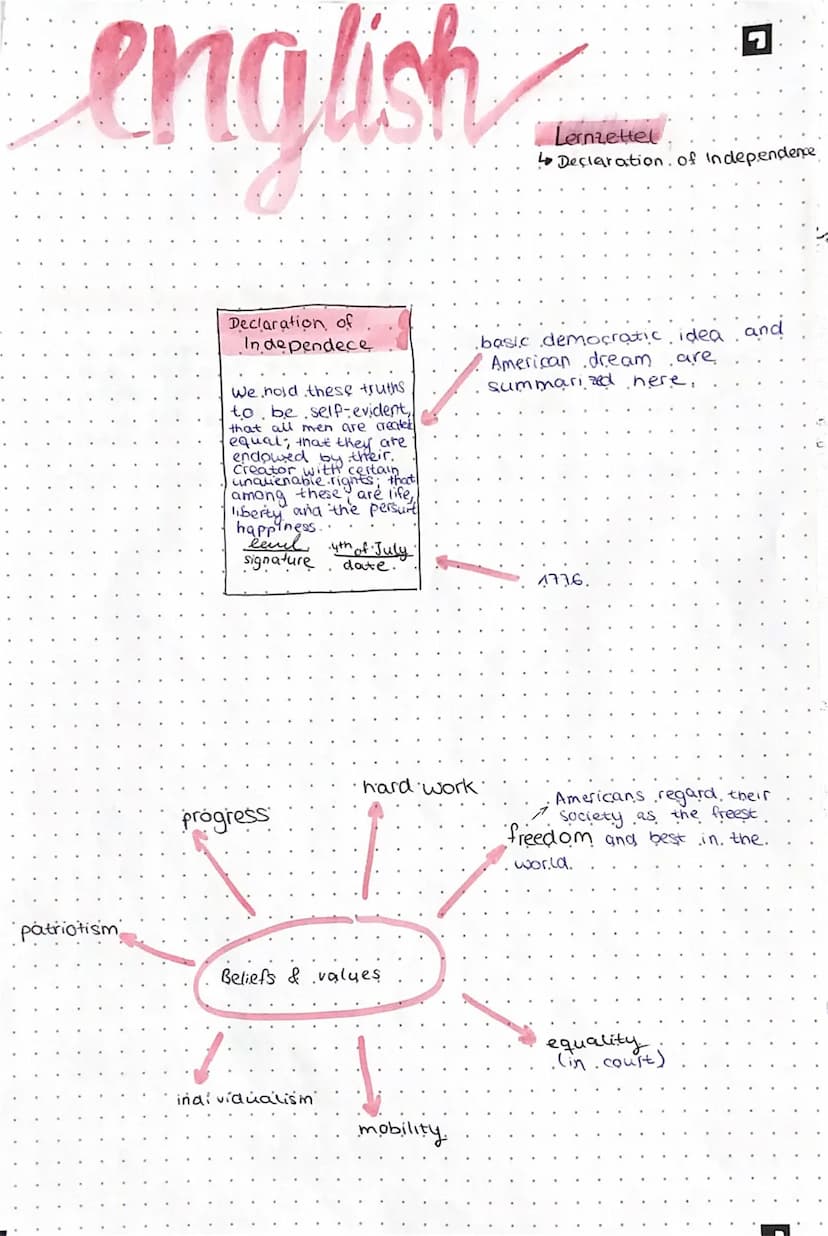 english
Lernzettel
↳ Declaration of Independence
Declaration of
Independece
We hold these truths
to be self-evident,
that all men are created
equal; that they are
endowed by their
Creator with certain
unalienable rights; that
among these, are life,
liberty and the persuit
happiness
signature
4th of July
date
basic democratic idea and
American dream are
summarized here.
1776
hard work
progress
Americans regard their
society as the freest
freedom and best in the
world.
patriotism
Beliefs & values
equality
(in court)
individualism
mobility